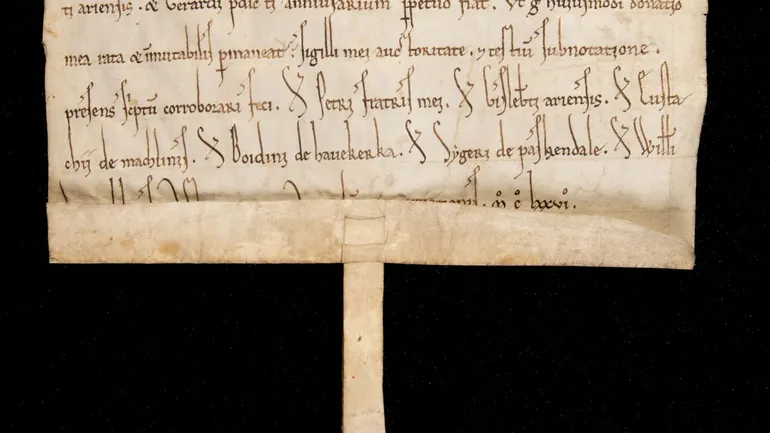 ti ariensis. & Gerardi pdicti anniversarium ppetuo fiat. Ut g huiusmodi donatio
mea rata & inmutabilis pmaneat. sigilli mei auctoritate. 7 testiu subnotatione.
presens sc̄ptu corroborari feci. S Petri fratris mei. S Gisleb̄ti ariensis. S Eusta
chij de machlinis. S Boidini de havekerka. S Sygeri de paskendale. S Willi
M̊ C̊ lxxvi̊.